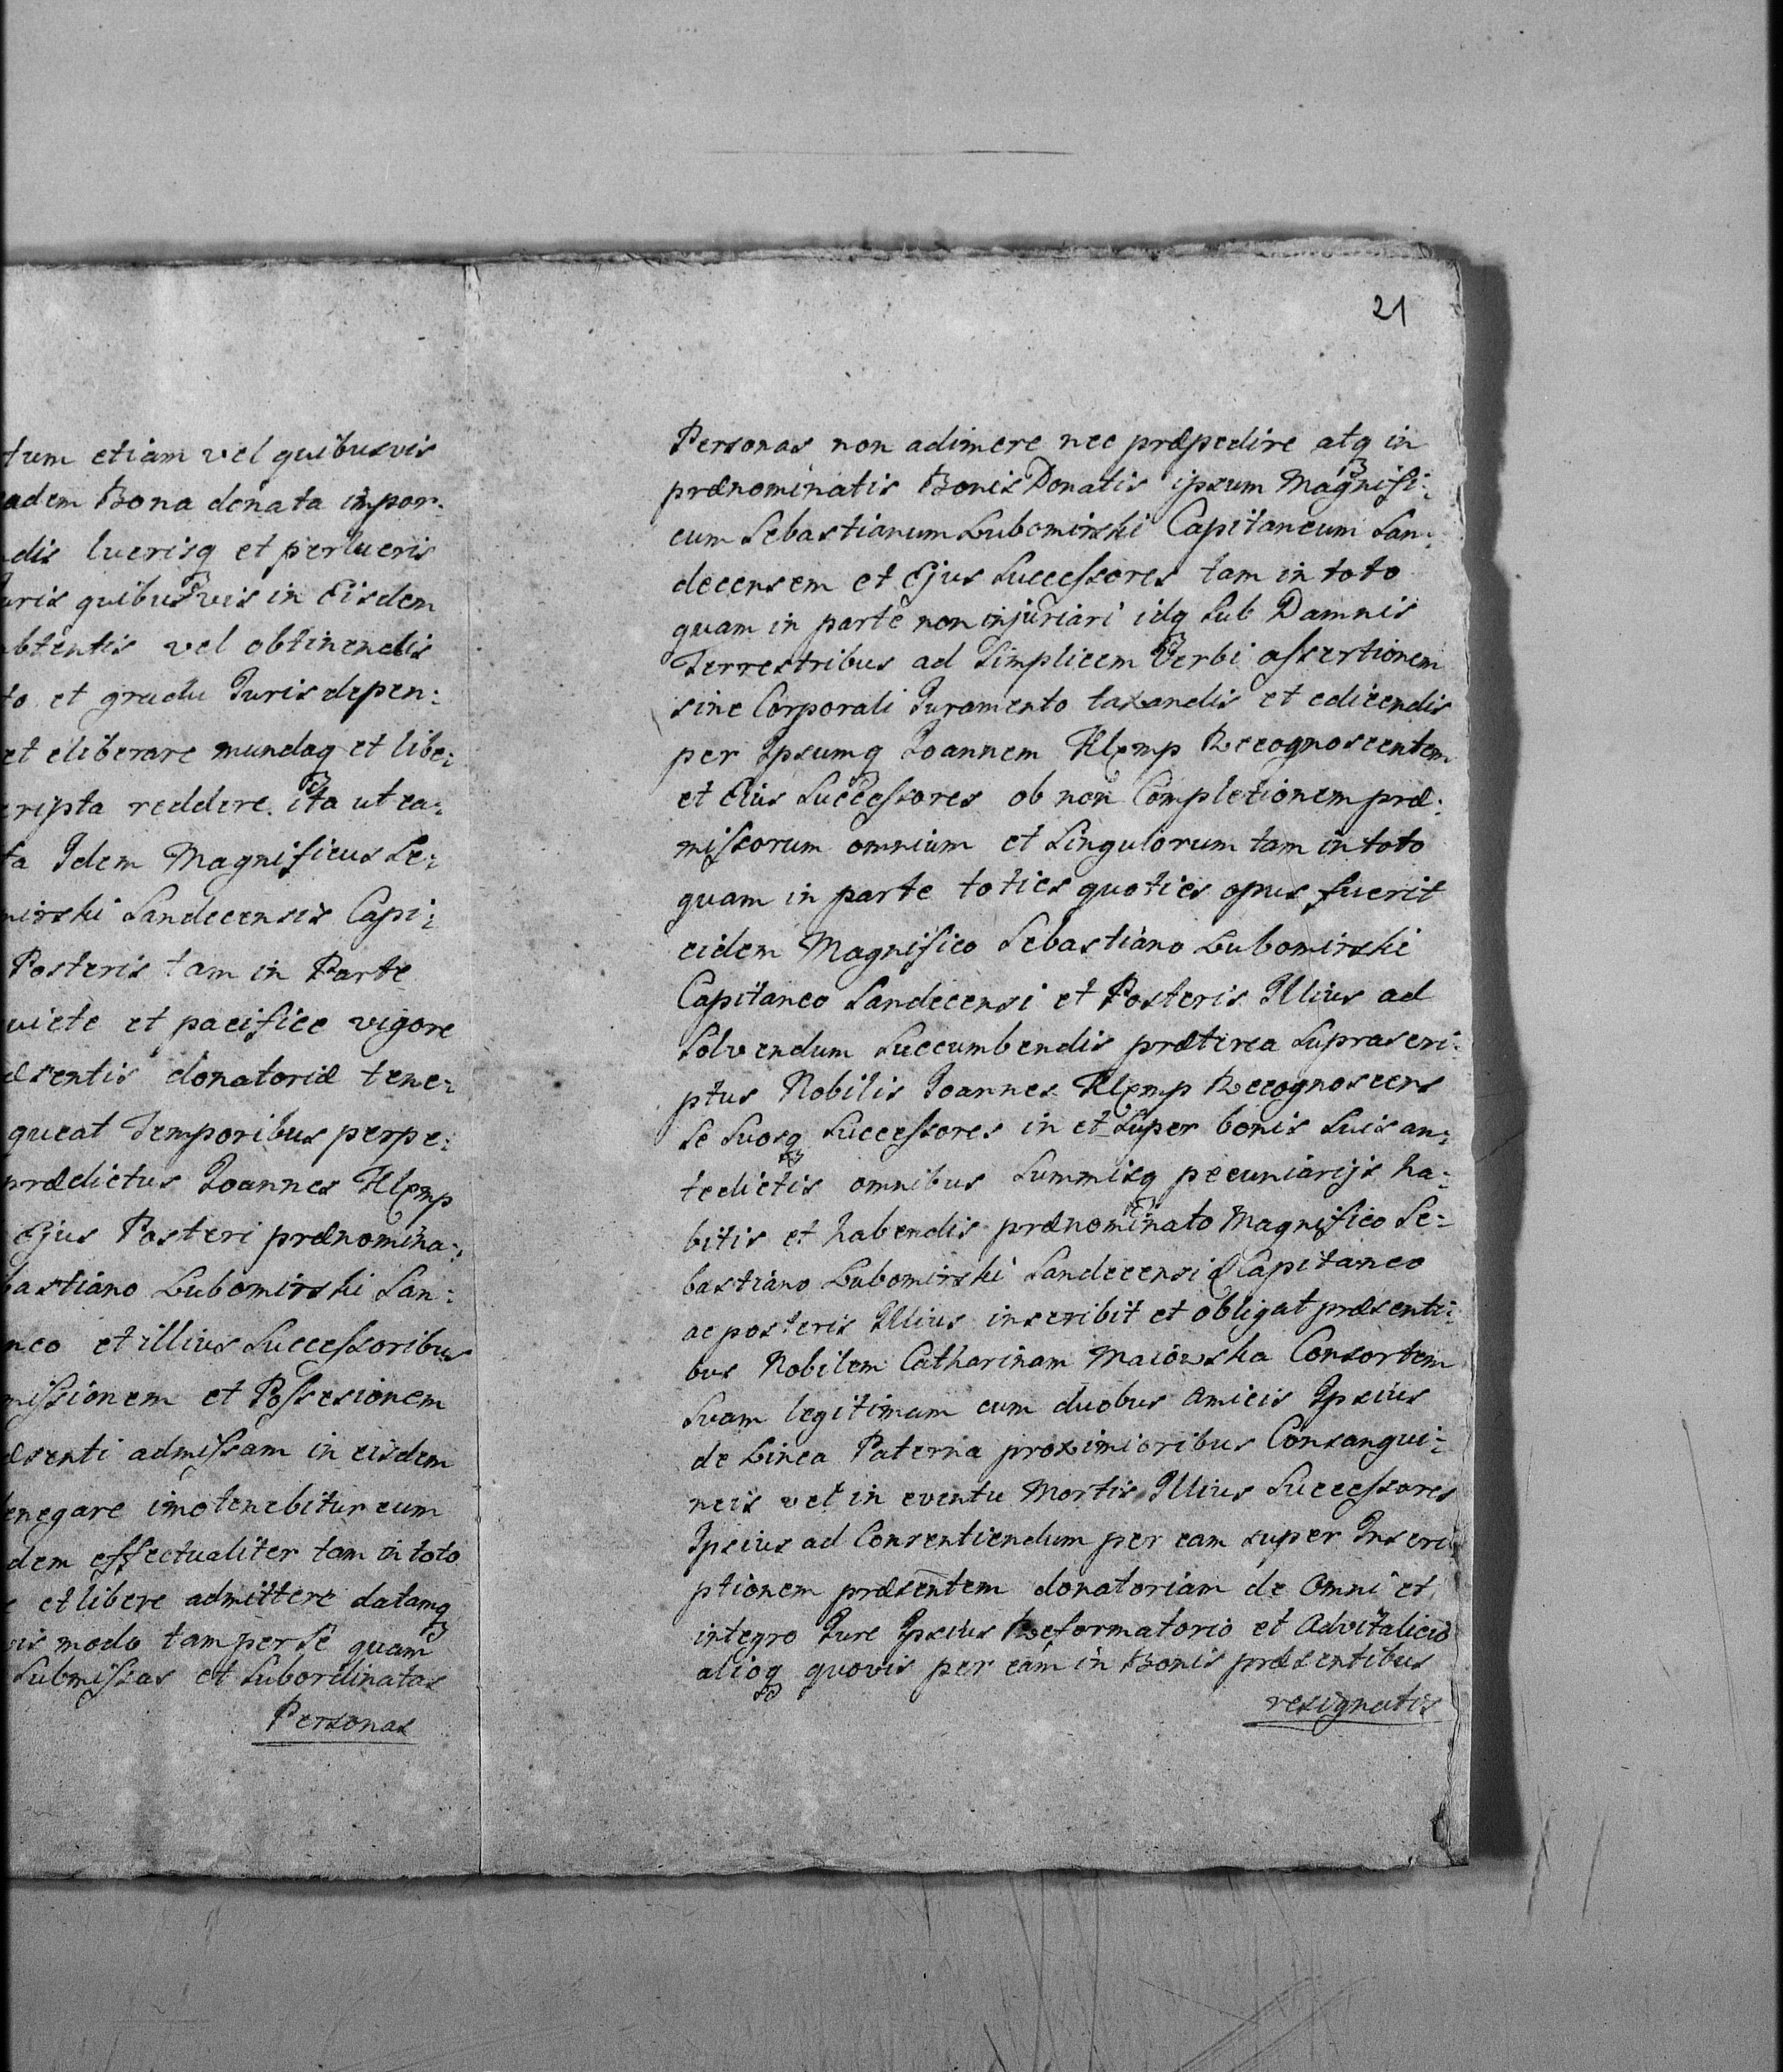 tum etiam vel quibusvis
adem Bona donata impor:
dis luerisq et perlueris
uris quibusvis in Eisdem
btentis vel obtinendis
to et gradu Juris depen:
et eliberare mundaq et libe:
cripta reddere. ita ut ea:
ta Idem Magnificus Se:
mirski Sandecensis Capi:
Posteris tam in Parte
uiete et pacifice vigore
æsentis donatoriæ tene:
queat Temporibus perpe:
prædictus Joannes Klemp
Ejus Posteri prænomina:
bastiano Lubomirski San:
neo et illius Successoribus
missionem et Possesionem
æsenti admissam in eisdem
denegare imo tenebitur eum
dem effectualiter tam in toto
e et libere admittere datamq
vis modo tam per se quam
Submissas et Subordinatas
Personas
21
Personas non adimere nec præpedire atq in
prænominatis Bonis Donatis ipsum Magnifi:
cum Sebastianum Lubomirski Capitaneum San:
decensem et Ejus Successores tam in toto
quam in parte non injuriari idq Sub Damnis
Terrestribus ad Simplicem Verbi assertionem
sine Corporali Juramento taxandis et edicendis
per Ipsumq Joannem Klemp Recognoscentem
et Eius Successores ob non Completionem præ:
missorum omnium et Singulorum tam in toto
quam in parte toties quoties opus fuerit
eidem Magnifico Sebastiano Lubomirski
Capitaneo Sandecensi et Posteris Illius ad
Solvendum Succumbendis prætirea Suprascri:
ptus Nobilis Joannes Klemp Recognoscens
Se Suosq Successores in et Super bonis Suis an:
tedictis omnibus Summisq pecuniarijs ha:
bitis et habendis prænominato Magnifico Se:
bastiano Lubomirski Sandecensi Capitaneo
ac posteris Illius inscribit et obligat præsenti:
bus Nobilem Catharinam Maiowska Consortem
Suam legitimam cum duobus Amicis Ipsius
de Linea Paterna proximioribus Consangui:
neis vel in eventu Mortis Illius Successores
Ipsius ad Consentiendum per eam super Inscri
ptionem præsentem donatoriam de Omni et
integro Jure Ipsius Reformatorio et Advitalicio
alioq quovis per eam in Bonis præsentibus
resignatis